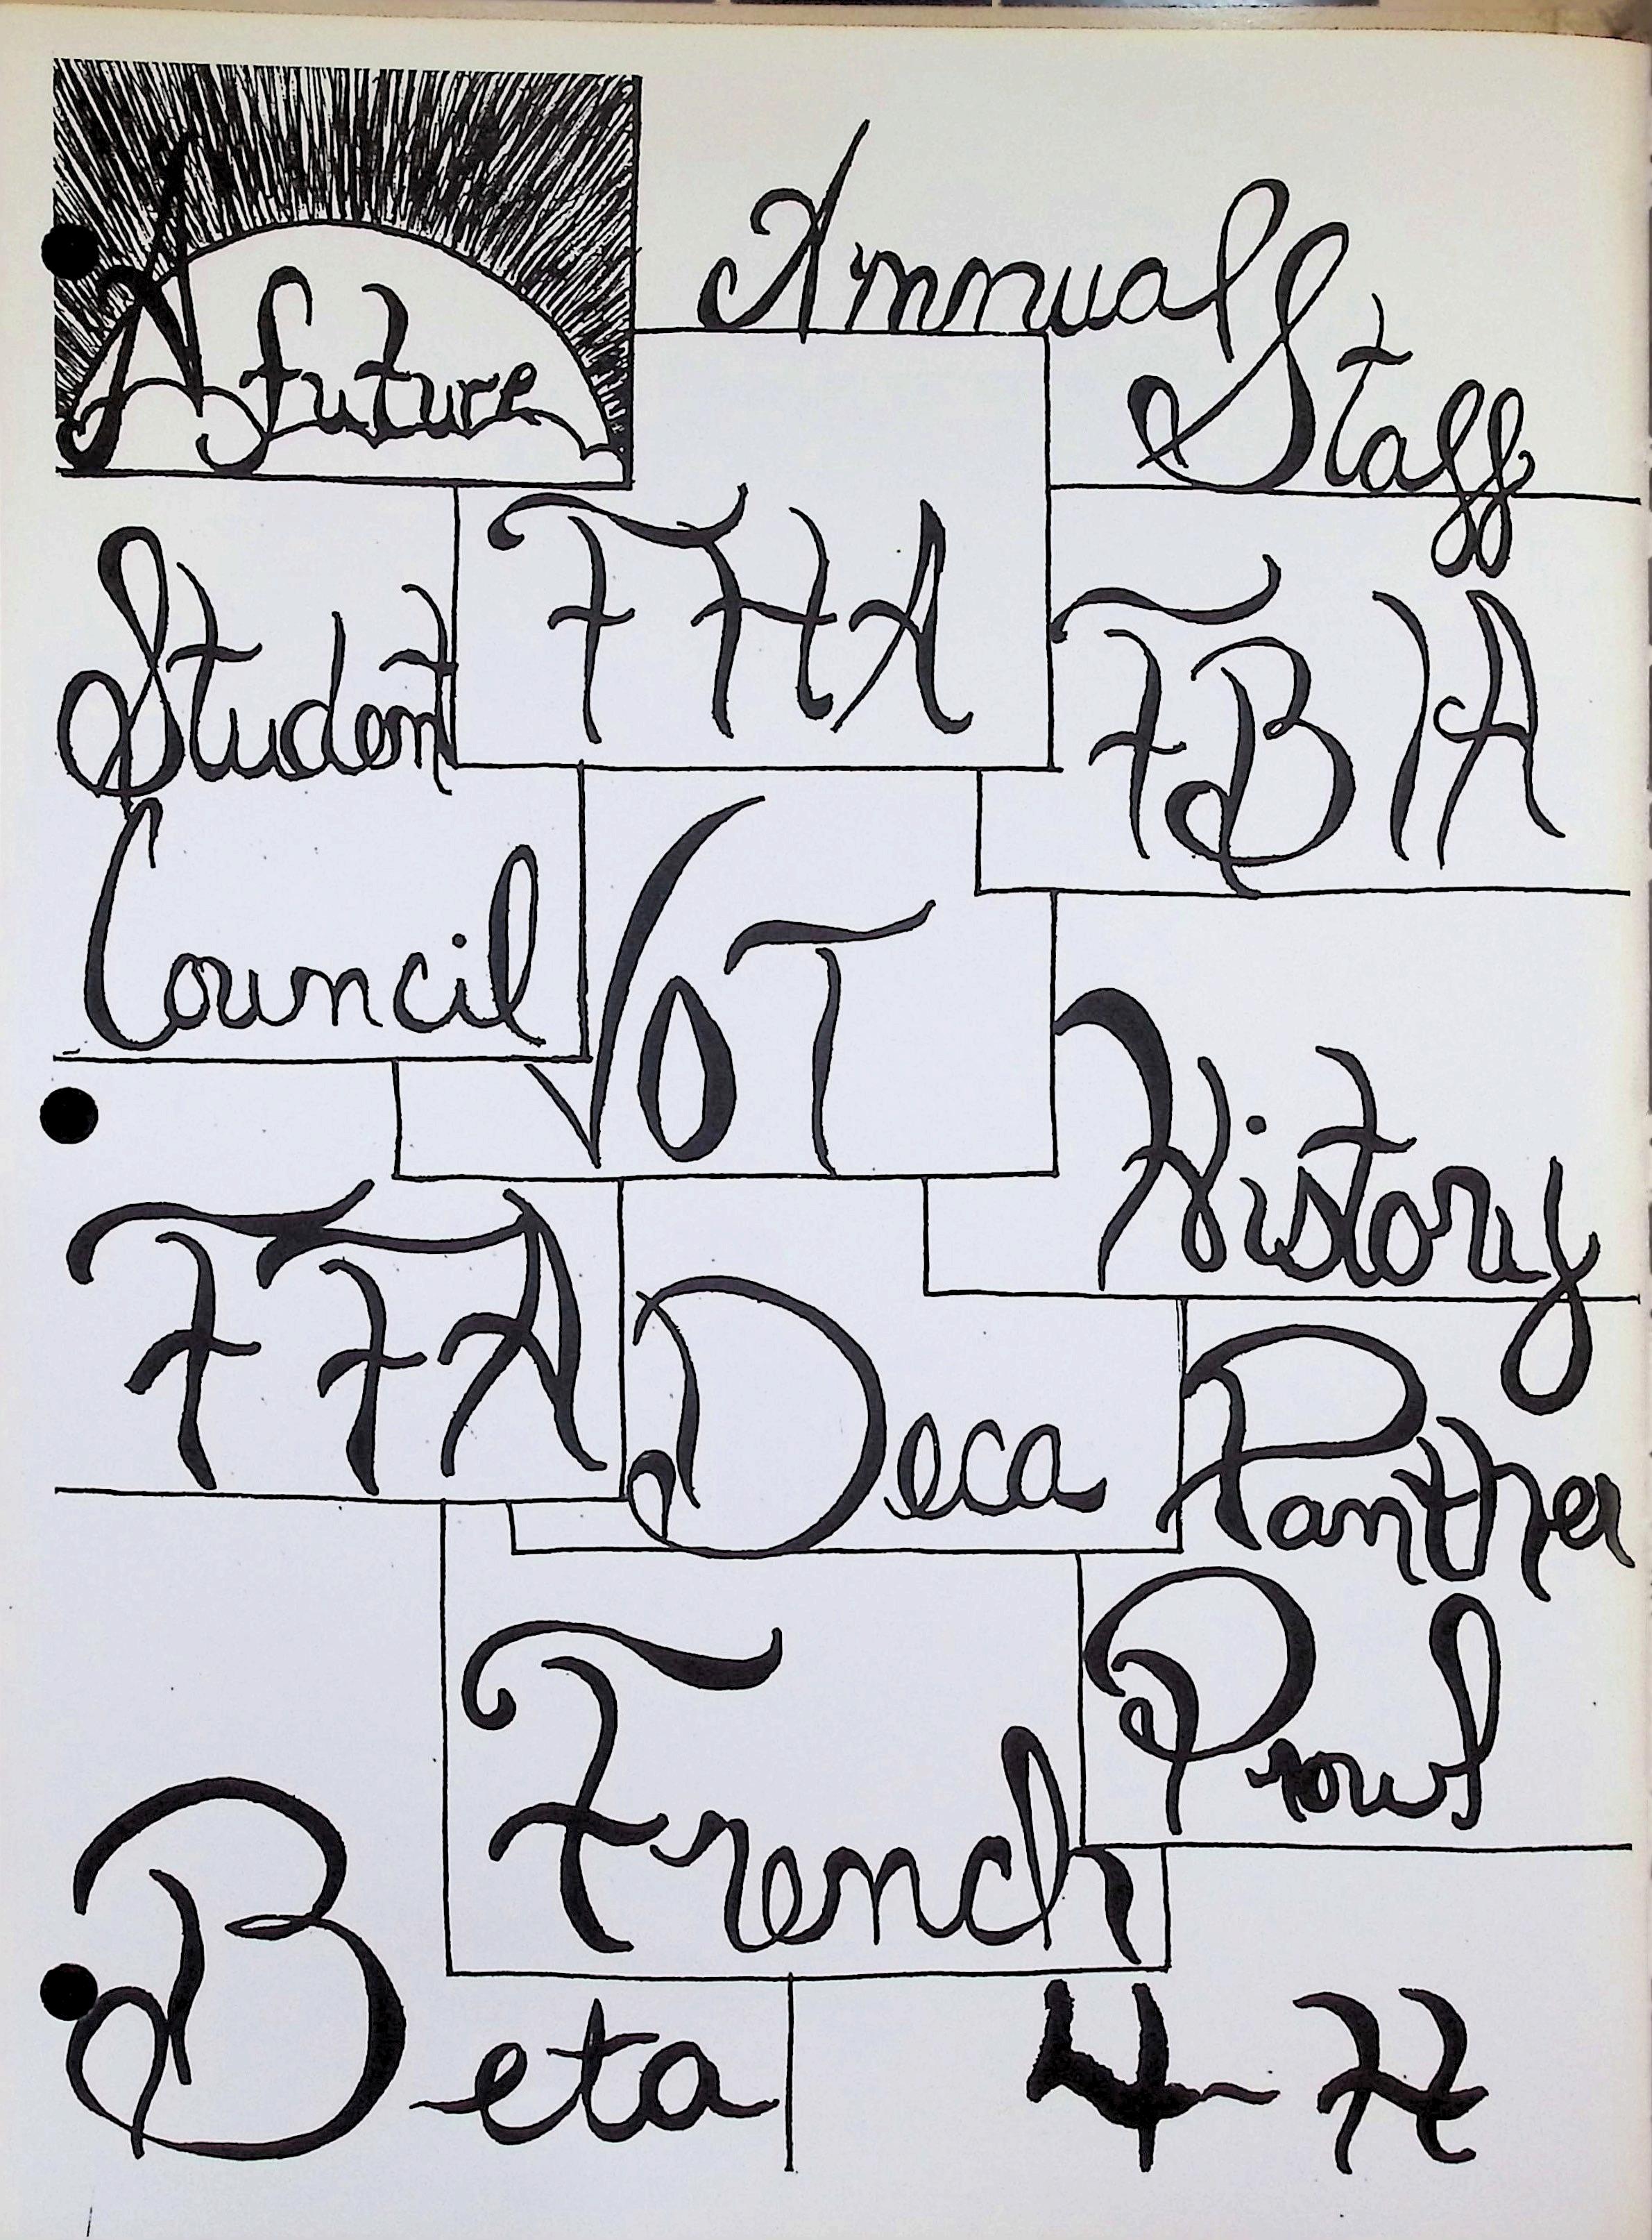 A future
Annual
Staff
FHA
Student
Council
FBLA
VOT
History
FFA
Deca
Panther
Prowl
French
Beta
4-H